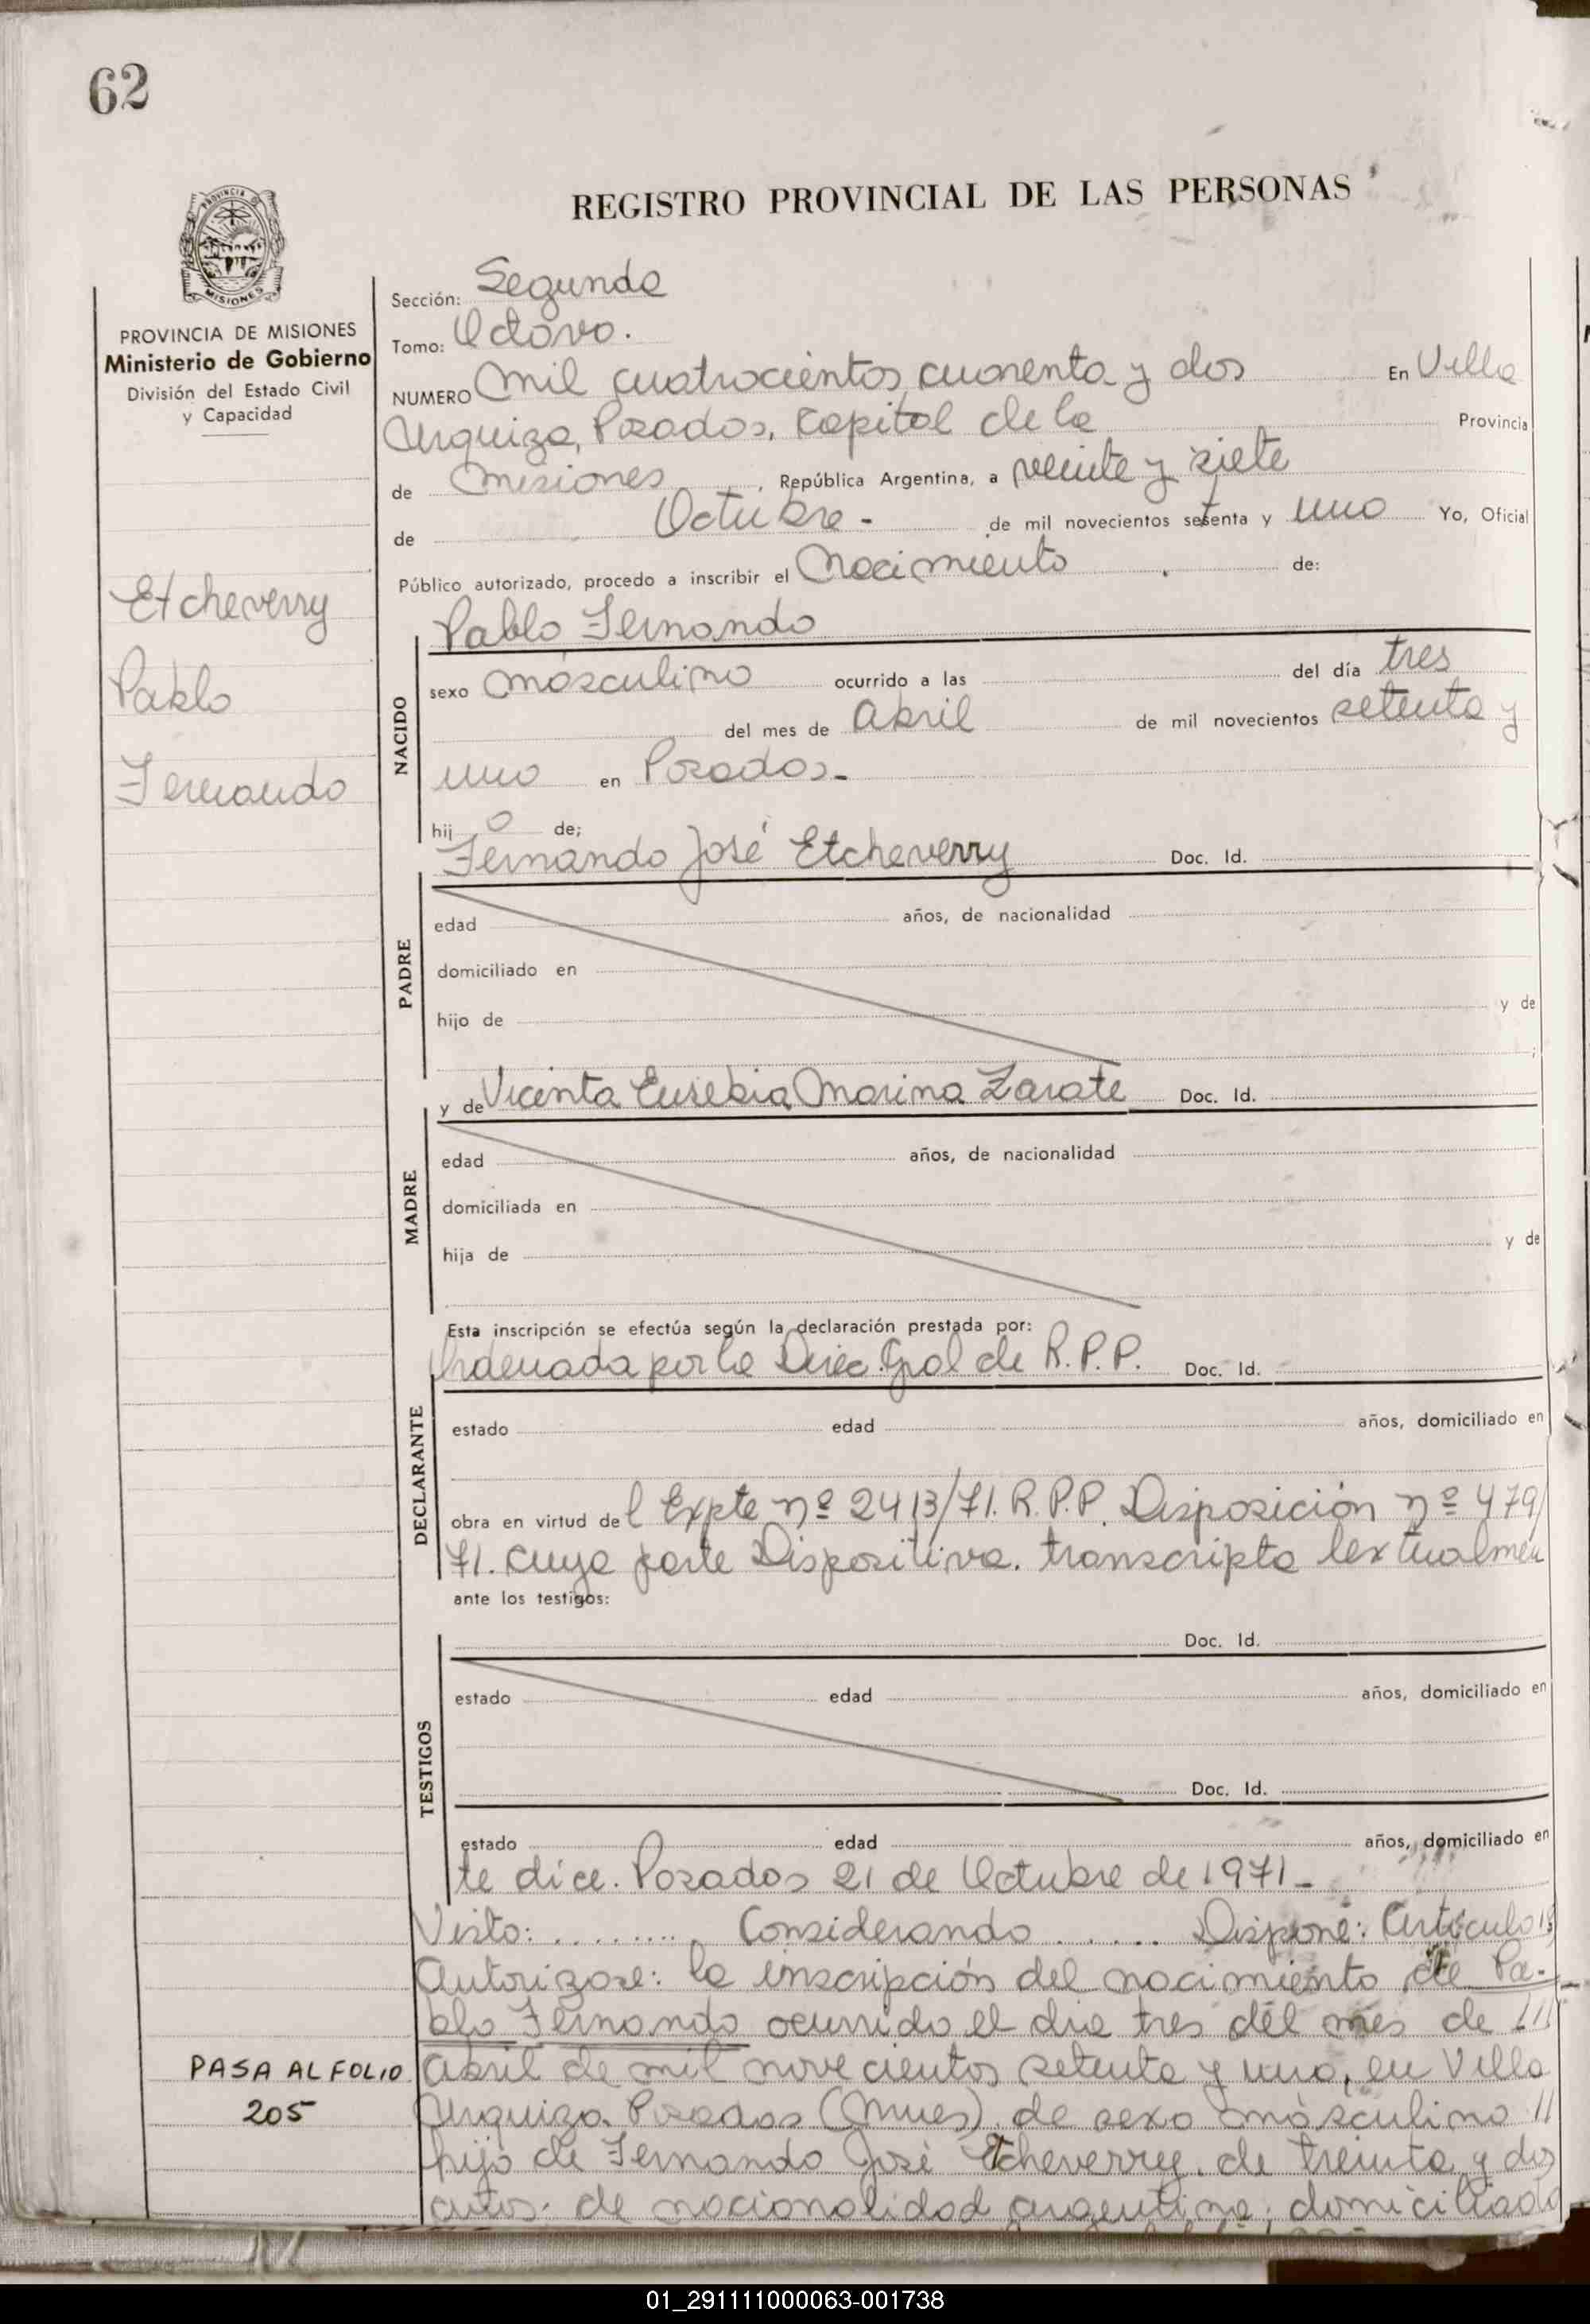 62
REGISTRO PROVINCIAL DE LAS PERSONAS
PROVINCIA
MISIONES
PROVINCIA DE MISIONES
Ministerio de Gobierno
División del Estado Civil
y Capacidad
Etcheverry
Pablo
Fernando
PASA AL FOLIO
205
Sección: Segunda
Tomo: Octavo.
NUMERO Mil cuatrocientos cuarenta y dos En Villa
Urquiza, Posadas, Capital de la Provincia
de Misiones, República Argentina, a veinte y siete
de Octubre - de mil novecientos setenta y uno Yo, Oficial
Público autorizado, procedo a inscribir el Nacimiento de:
NACIDO
Pablo Fernando
sexo masculino ocurrido a las del día tres
del mes de Abril de mil novecientos setenta y
uno en Posadas-
hij o de;
PADRE
Fernando José Etcheverry Doc. Id.
edad años, de nacionalidad
domiciliado en
hijo de y de
;
MADRE
y de Vicenta Eusebia Marina Zarate Doc. Id.
edad años, de nacionalidad
domiciliada en
hija de y de
DECLARANTE
Esta inscripción se efectúa según la declaración prestada por:
Ordenada por la Direc. Gral de R.P.P. Doc. Id.
estado edad años, domiciliado en
obra en virtud del Expte nº 2413/71. R.P.P. Disposición nº 479/
71. cuya parte Dispositiva. transcripta textualmen
ante los testigos:
TESTIGOS
Doc. Id.
estado edad años, domiciliado en
Doc. Id.
estado edad años, domiciliado en
te dice. Posadas 21 de Octubre de 1971-
Visto: ......... Considerando ...... Dispone: Artículo 1º
Autorizase: la inscripción del nacimiento de Pa-
blo Fernando ocurrido el dia tres del mes de ///
Abril de mil novecientos setenta y uno, en Villa
Urquiza. Posadas (Mnes). de sexo masculino //
hijo de Fernando José Etcheverry. de treinta y dos
años. de nacionalidad argentina; domiciliado
01_291111000063-001738